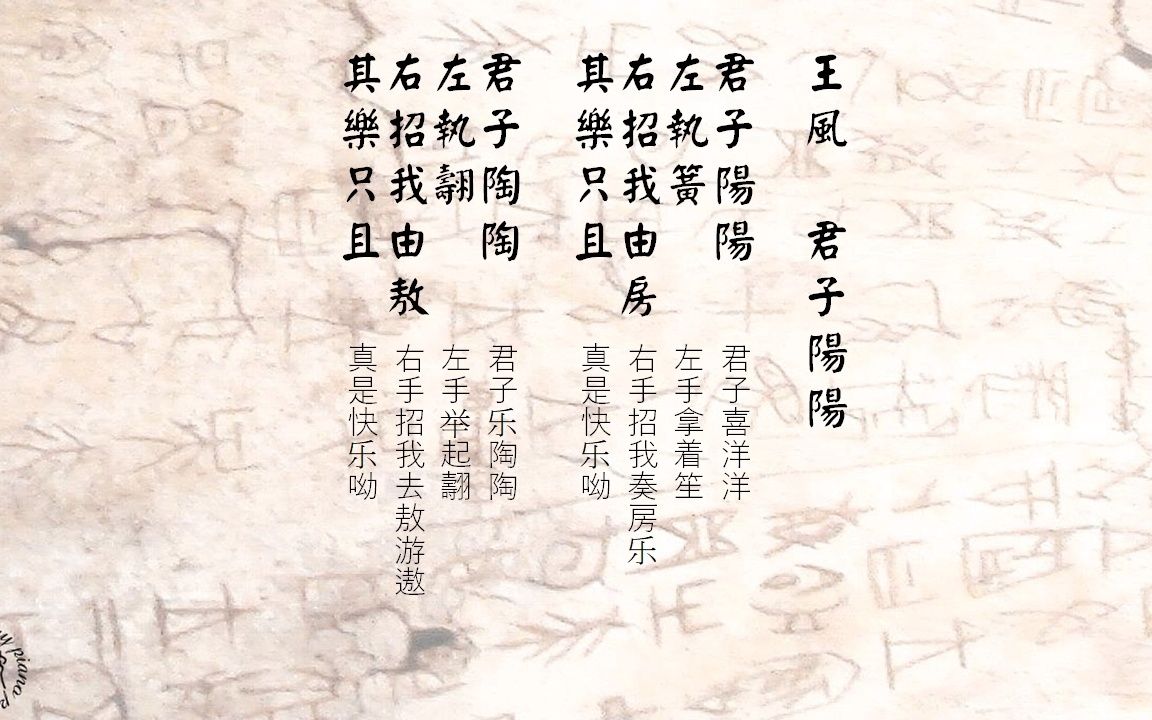 王風 君子陽陽
君子陽陽
左執簧
右招我由房
其樂只且
君子喜洋洋
左手拿着笙
右手招我奏房乐
真是快乐呦
君子陶陶
左執翿
右招我由敖
其樂只且
君子乐陶陶
左手举起翿
右手招我去敖游遨
真是快乐呦
piano